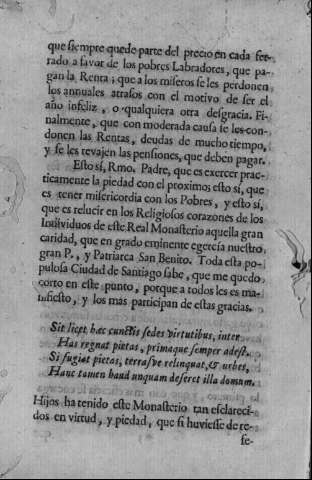 que siempre quede parte del precio en cada fer-
rado a favor de los pobres Labradores, que pa-
gan la Renta; que a los miseros se les perdonen
los annuales atrasos con el motivo de ser el
año infeliz, o qualquiera otra desgracia. Fi-
nalmente, que con moderada causa se les con-
donen las Rentas, deudas de mucho tiempo,
y se les revajen las pensiones, que deben pagar.
Esto sí, Rmo. Padre, que es exercer prac-
ticamente la piedad con el proximo; esto sí, que
es tener misericordia con los Pobres, y esto sí,
que es relucir en los Religiosos corazones de los
Individuos de este Real Monasterio aquella gran
caridad, que en grado eminente egercía nuestro
gran P., y Patriarca San Benito. Toda esta po-
pulosa Ciudad de Santiago sabe, que me quedo
corto en este punto, porque a todos les es ma-
nifiesto, y los mas participan de estas gracias.
Sit licet hæc cunctis sedes virtutibus, inter
Has regnat pietas, primaque semper adest.
Si fugiat pietas, terrasve relinquat, & urbes,
Hanc tamen haud unquam deseret illa domum.
Hijos ha tenido este Monasterio tan esclareci-
dos en virtud, y piedad, que si huviesse de re-
fe-